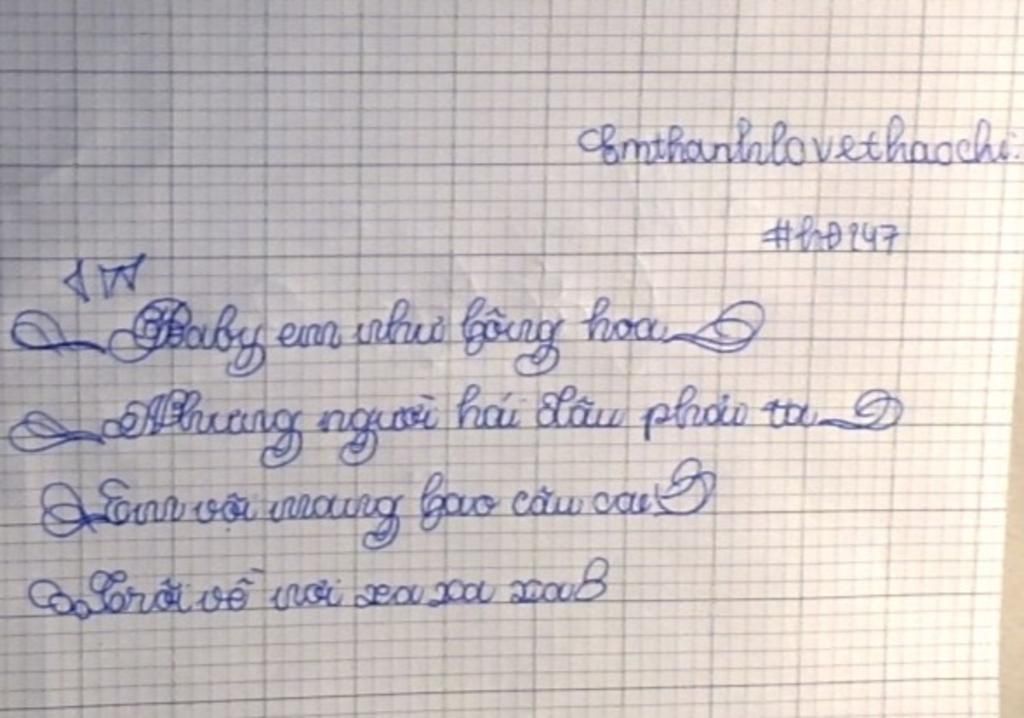 Emthanhlovethaochi.
Baby em như bông hoa
Nhưng người hái đâu phải ta
Em vội mang bao câu ca
Trôi về nơi xa xa xa